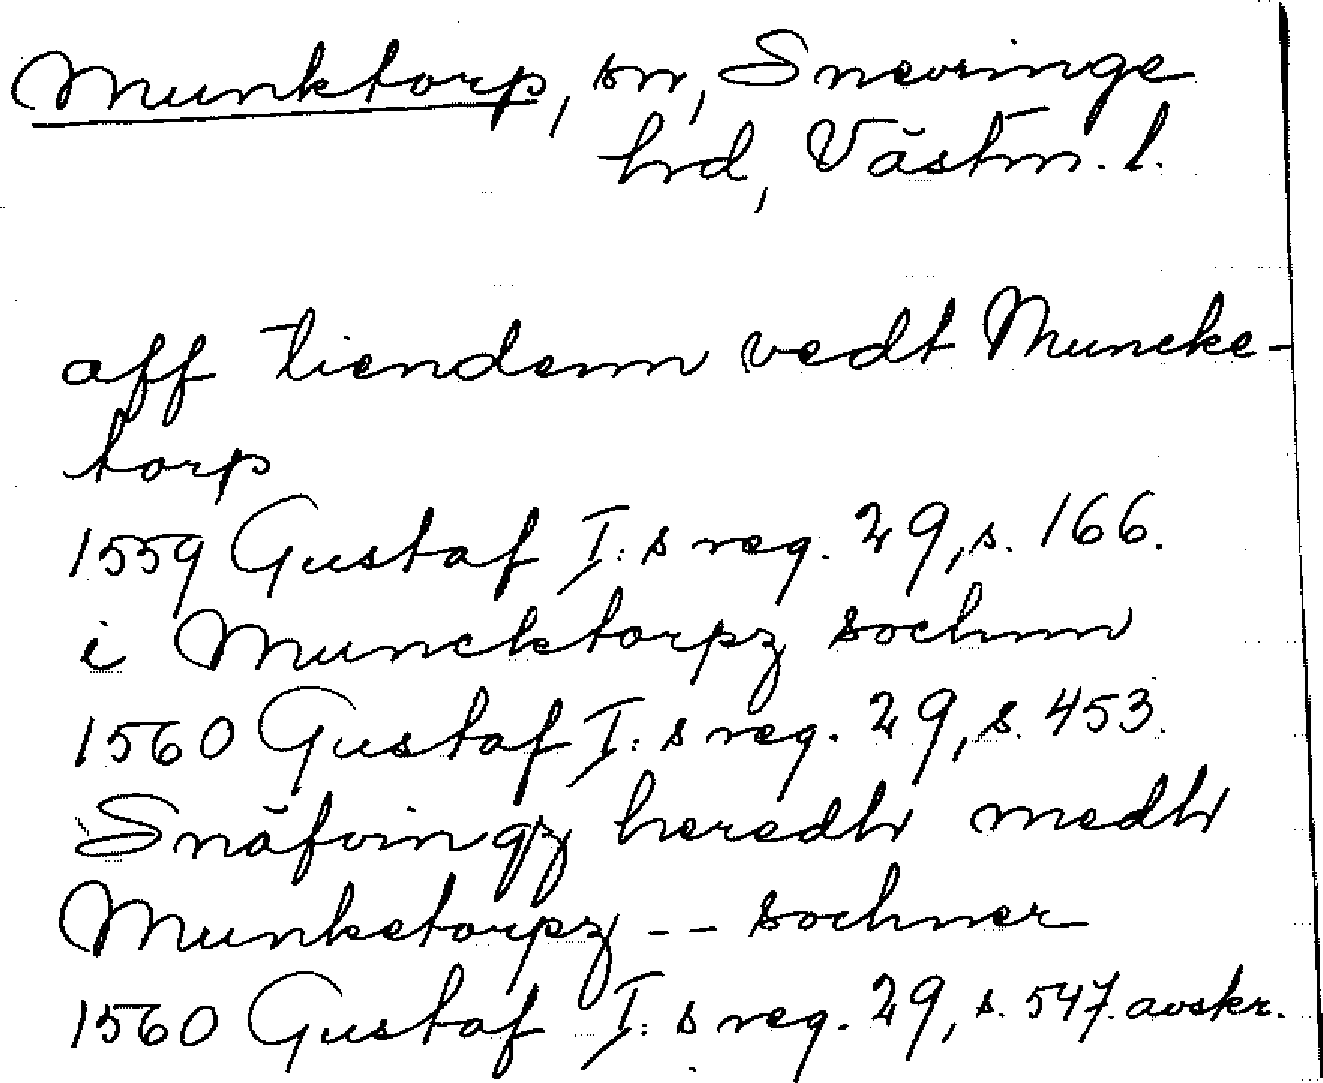 Munktorp, sn, Snevringe
hrd, Västm. l.
aff tiendenn vedt Muncke-
torp
1559 Gustaf I:s reg. 29, s. 166.
i Muncktorpz sochnn
1560 Gustaf I:s reg. 29, s. 453.
Snäfvingz heredh medh
Munketorpz -- sochner
1560 Gustaf I:s reg. 29, s. 547. avskr.